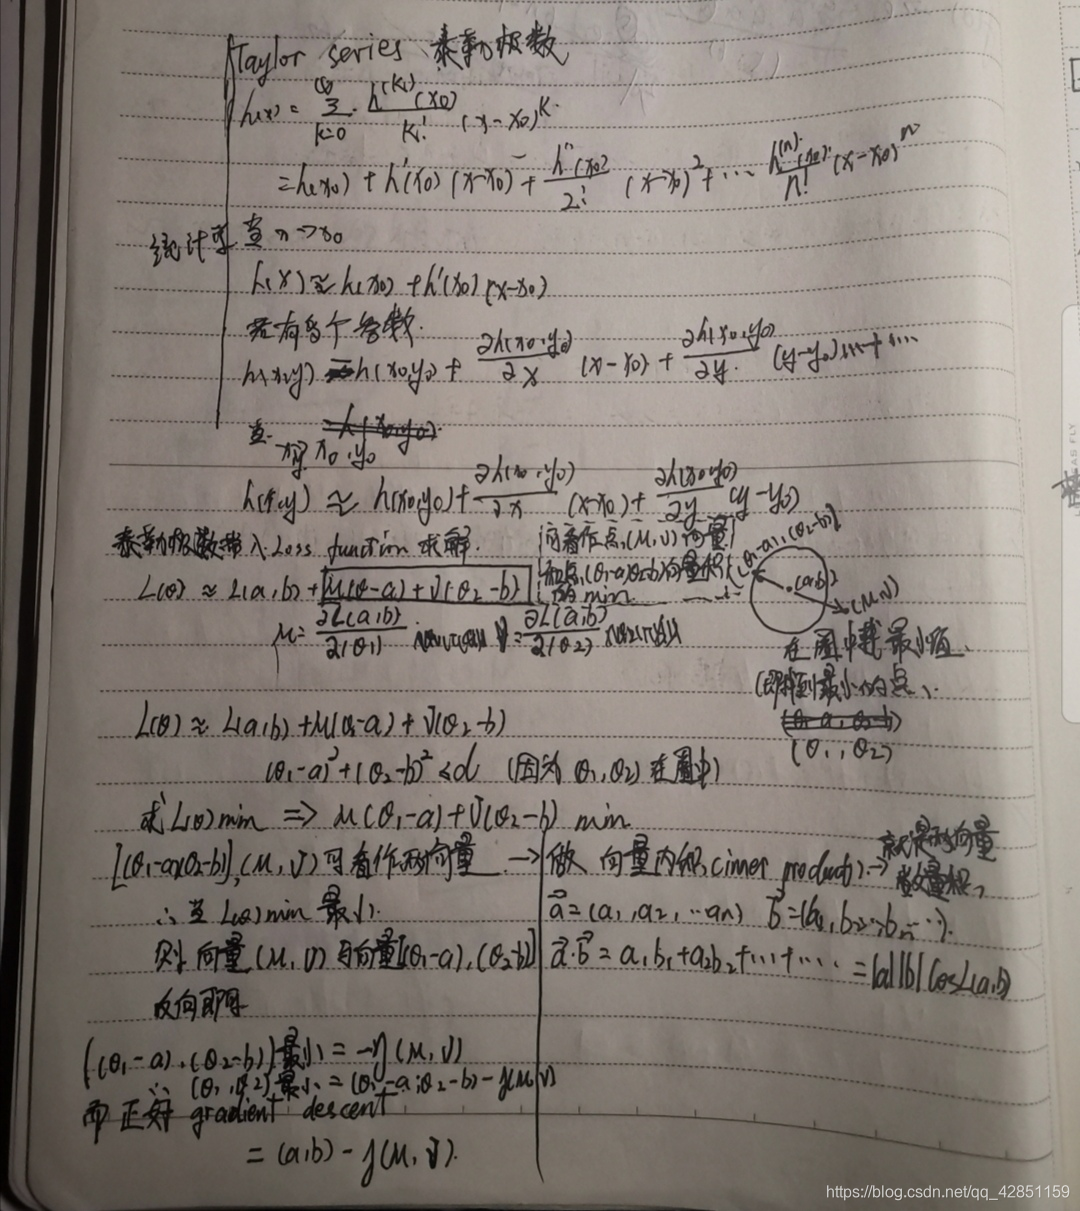 Taylor series 泰勒级数
h(x) = ∑_{k=0}^{∞} h^{(k)}(x0)/k! (x-x0)^k
= h(x0) + h'(x0)(x-x0) + h''(x0)/2! (x-x0)^2 + … h^{(n)}(x0)/n! (x-x0)^n
当 x→x0
h(x) ≈ h(x0) + h'(x0)(x-x0)
若有多个参数.
h(x,y) = h(x0,y0) + ∂h(x0,y0)/∂x (x-x0) + ∂h(x0,y0)/∂y (y-y0) + …
当
x,y x0,y0
h(x,y) ≈ h(x0,y0) + ∂h(x0,y0)/∂x (x-x0) + ∂h(x0,y0)/∂y (y-y0)
泰勒级数带入Loss function 求解.
L(θ) ≈ L(a,b) + μ(θ1-a) + ν(θ2-b)
μ = ∂L(a,b)/∂(θ1) ν = ∂L(a,b)/∂(θ2)
可看作点(μ,ν)向量
和点(θ1-a)(θ2-b)向量积
的 min
(θ1-a),(θ2-b)
(a,b)
(μ,ν)
在圈中找最小值
(即找到最小的点、
(θ1, θ2)
L(θ) ≈ L(a,b) + μ(θ1-a) + ν(θ2-b)
(θ1-a)^2 + (θ2-b)^2 ≤ d (因为 θ1,θ2) 在圈中)
求 L(θ) min => μ(θ1-a) + ν(θ2-b) min
[(θ1-a)(θ2-b)],(μ,ν) 可看作两向量
∴ 当 L(θ) min 最小.
则 向量(μ,ν) 与向量[(θ1-a),(θ2-b)]
反向即可
→ 做 向量内积(inner product) → 就是两向量
数量积,
a⃗ = (a1,a2,…an) b⃗ = (b1,b2…bn…).
a⃗·b⃗ = a1b1+a2b2+…+… = |a||b|cos∠(a,b)
((θ1-a),(θ2-b)) 最小 = -η(μ,ν)
∴ (θ1,θ2) 最小 = (θ1-a,θ2-b) - η(μ,ν)
而正好 gradient descent
= (a,b) - η(μ,ν).
https://blog.csdn.net/qq_42851159